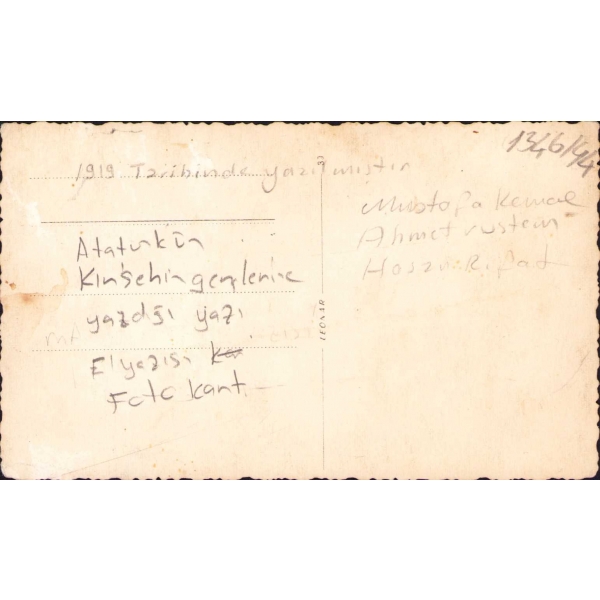 1346/44
1919 Tarihinde yazılmıştır
Atatürkün
Kırşehir gençlerine
yazdığı yazı
El yazısı
Foto kart
LEONAR
Mustafa Kemal
Ahmet rustem
Rifat